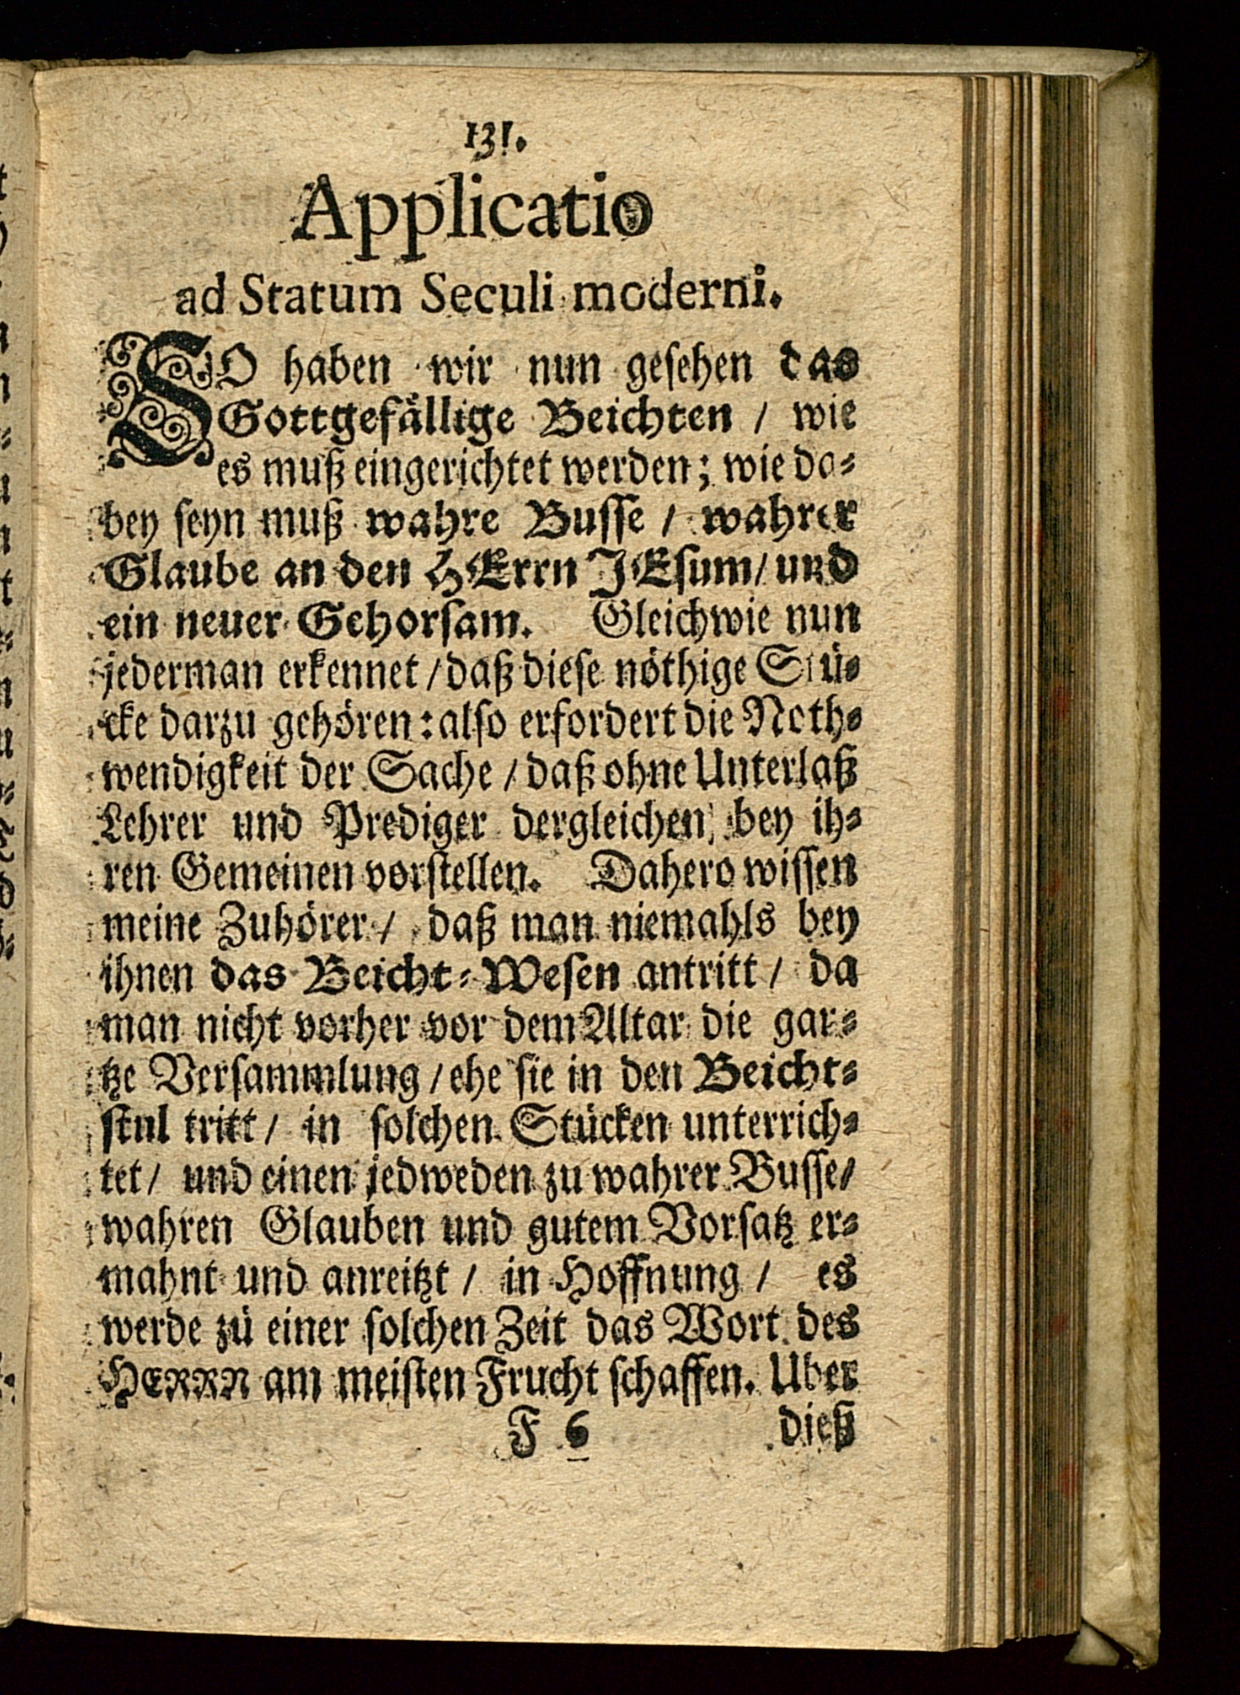 131.
Applicatio
ad Statum Seculi moderni.
SO haben wir nun gesehen das
Gottgefällige Beichten / wie
es muß eingerichtet werden; wie da-
bey seyn muß wahre Busse / wahrer
Glaube an den HErrn JEsum / und
ein neuer Gehorsam. Gleichwie nun
jederman erkennet / daß diese nöthige Stü-
cke darzu gehören: also erfordert die Noth-
wendigkeit der Sache / daß ohne Unterlaß
Lehrer und Prediger dergleichen bey ih-
ren Gemeinen vorstellen. Dahero wissen
meine Zuhörer / daß man niemahls bey
ihnen das Beicht-Wesen antritt / da
man nicht vorher vor dem Altar die gan-
tze Versammlung / ehe sie in den Beicht-
stul tritt / in solchen Stücken unterrich-
tet / und einen jedweden zu wahrer Busse /
wahren Glauben und gutem Vorsatz er-
mahnt und anreitzt / in Hoffnung / es
werde zu einer solchen Zeit das Wort des
HERRN am meisten Frucht schaffen. Uber
F 6 dieß